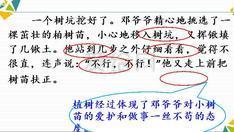 一个树坑挖好了。邓爷爷精心地挑选了一
棵茁壮的柏树苗，小心地移入树坑，又挥锹填
了几锹土。他站到几步之外仔细看看，觉得不
很直，连声说：“不行，不行！”他又走上前把
树苗扶正。
植树经过体现了邓爷爷对小树
苗的爱护和做事一丝不苟的态
度。